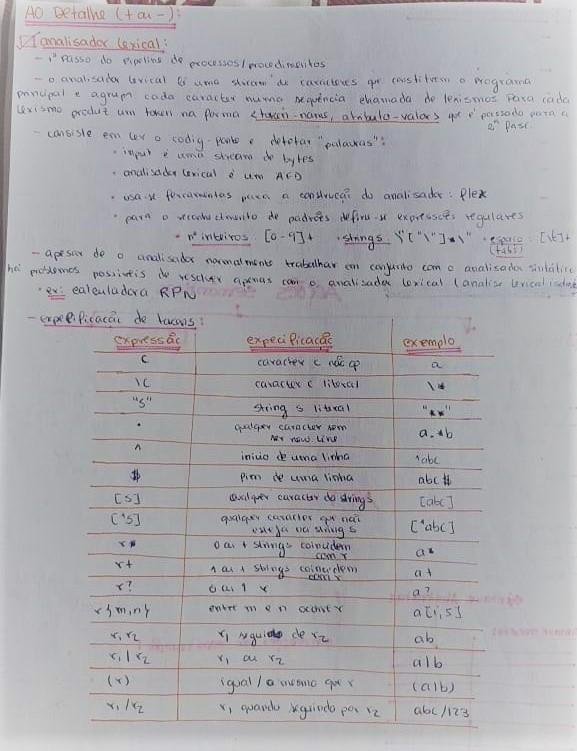 AO Detalhe (+ ou -):
analisador lexical:
- 1º Passo do pipeline de processos/procedimentos
- o analisador lexical lê uma stream de caracteres que constituem o programa
principal e agrupa cada caracter numa sequência chamada de lexismos. Para cada
lexismo produz um token na forma <token-name, atributo-valor> que é passado para a
2ª fase.
- consiste em ler o codigo-fonte e detetar "palavras":
• input é uma stream de bytes
• analisador lexical é um AFD
• usa-se ferramentas para a construção do analisador: flex
• para o reconhecimento de padrões define-se expressões regulares
• nº inteiros: [0-9]+ • strings: \"[^\"]*\" • espaço: [\t]+
(tabs)
- apesar de o analisador normalmente trabalhar em conjunto com o analisador sintático
há problemas possiveis de resolver apenas com o analisador lexical (analise lexical isolada
• ex: calculadora RPN
- especificação de tokens:
expressão especificação exemplo
c caracter c não op a
\c caracter c literal \*
"s" string s literal "**"
. qualquer caracter sem
ser new line a.*b
^ inicio de uma linha ^abc
$ fim de uma linha abc$
[s] qualquer caracter da string s [abc]
[^s] qualquer caracter que não
esteja na string s [^abc]
r* 0 ou + strings coincidem
com r a*
r+ 1 ou + strings coincidem
com r a+
r? 0 ou 1 r a?
r{m,n} entre m e n ocorr r a[1,5]
r₁ r₂ r₁ seguido de r₂ ab
r₁ | r₂ r₁ ou r₂ a|b
(r) igual / o mesmo que r (a|b)
r₁/r₂ r₁ quando seguido por r₂ abc/123